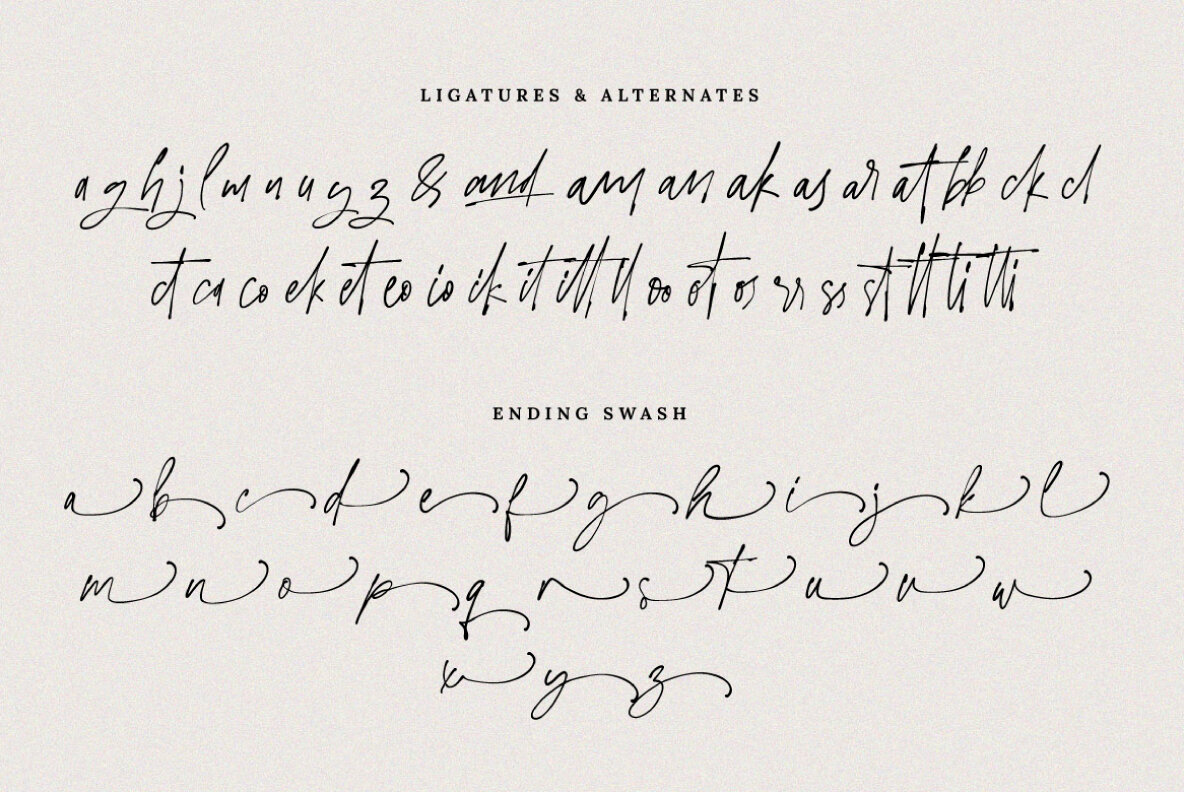 LIGATURES & ALTERNATES
a g h j l m n u y z & and am an ak as ar at bb ck cl
ct ca co ek et eo io ik it itt il oo ot os rr ss st tt ti tti
ENDING SWASH
a b c d e f g h i j k l
m n o p q r s t u v w
x y z